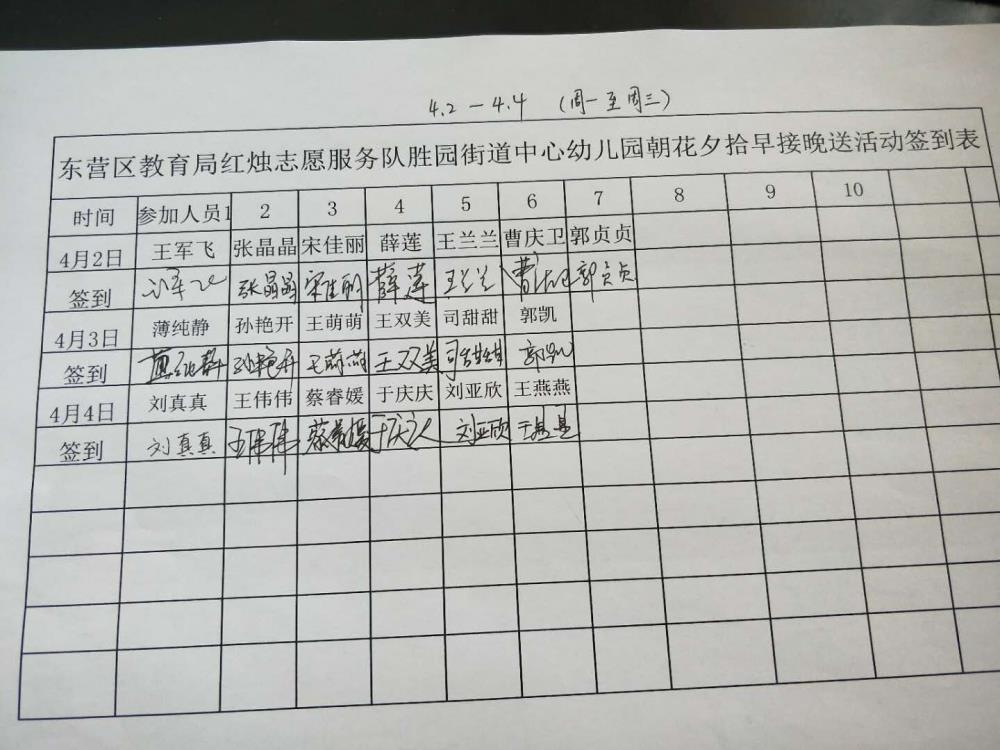 4.2－4.4 （周一至周三）
东营区教育局红烛志愿服务队胜园街道中心幼儿园朝花夕拾早接晚送活动签到表
时间 参加人员1 2 3 4 5 6 7 8 9 10
4月2日 王军飞 张晶晶 宋佳丽 薛莲 王兰兰 曹庆卫 郭贞贞
签到 王军飞 张晶晶 宋佳丽 薛莲 王兰兰 曹庆卫 郭贞贞
4月3日 薄纯静 孙艳开 王萌萌 王双美 司甜甜 郭凯
签到 薄纯静 孙艳开 王萌萌 王双美 司甜甜 郭凯
4月4日 刘真真 王伟伟 蔡睿媛 于庆庆 刘亚欣 王燕燕
签到 刘真真 王伟伟 蔡睿媛 于庆庆 刘亚欣 王燕燕